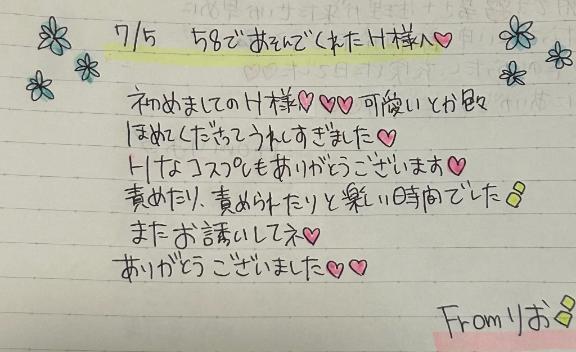 7/5 58であそんでくれたH様へ♡
初めましてのH様♡♡♡可愛いとか色々
ほめてくださってうれしすぎました♡
Hなコスプレもありがとうございます♡
責めたり、責められたりと楽しい時間でした
またお誘いしてネ♡
ありがとうございました♡♡
Fromりお